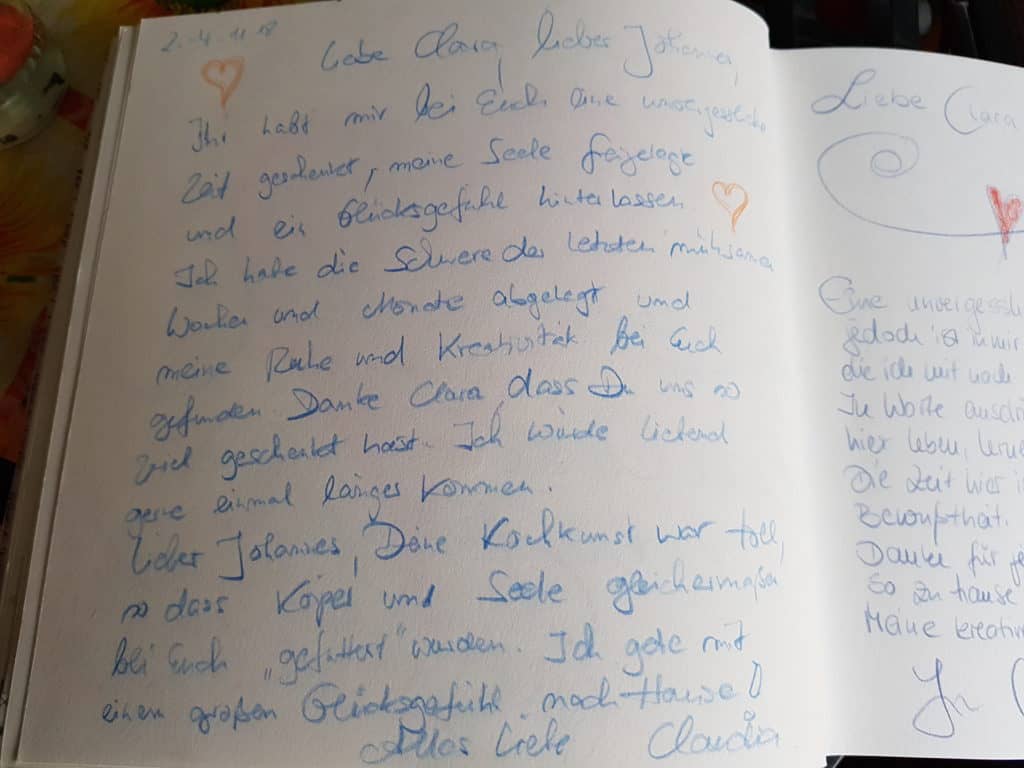 2.-4.11.18
Liebe Clara, lieber Johannes,
Ihr habt mir bei Euch eine unvergessliche
Zeit geschenkt, meine Seele freigelegt
und ein Glücksgefühl hinterlassen
Ich habe die Schwere der letzten mühsamen
Wochen und Monate abgelegt und
meine Ruhe und Kreativität bei Euch
gefunden. Danke Clara, dass Du uns so
viel geschenkt hast. Ich würde liebend
gerne einmal länger kommen.
Lieber Johannes, Deine Kochkunst war toll,
so dass Körper und Seele gleichermaßen
bei Euch „gefüttert“ wurden. Ich gehe mit
einem großen Glücksgefühl nach Hause!
Alles Liebe Claudia
Liebe Clara
Eine unvergessli
jedoch ist in mir
die ich mit nach
In Worte ausdrü
hier leben, lerne
Die Zeit hier i
Bewußtheit.
Danke für
So zu Hause
Meine kreativ